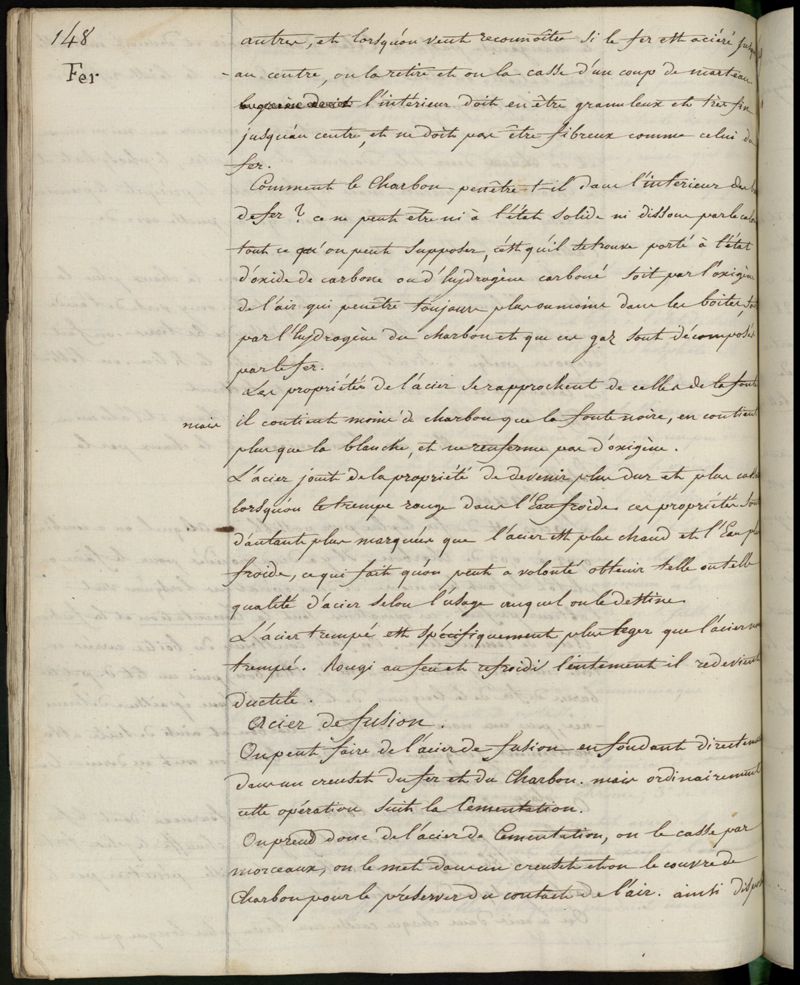 148
Fer
autres, et lorsqu'on veut reconnoître si le fer est aciéré jusqu'
au centre, on la retire et on la casse d'un coup de marteau
l'intérieur doit en être granuleux et très fin
jusqu'au centre, et ne doit pas être fibreux comme celui du
fer.
Comment le Charbon penêtre-t-il dans l'intérieur des
de fer ? ce ne peut etre ni à l'état solide ni dissous par le
tout ce qu'on peut supposer, c'est qu'il se trouve porté à l'état
d'oxide de carbone ou d'hydrogène carboné soit par l'oxigène
de l'air qui penêtre toujours plus ou moins dans les boîtes, soit
par l'hydrogène du charbon et que ces gaz sont décomposés
par le fer.
Les propriétés de l'acier se rapprochent de celles de la fonte
mais il contient moins de charbon que la fonte noire, en contient
plus que la blanche, et ne renferme pas d'oxigène.
L'acier jouit de la propriété de devenir plus dur et plus cassant
lorsqu'on le trempe rouge dans l'Eau froide. ces propriétés sont
d'autant plus marquées que l'acier est plus chaud et l'Eau plus
froide, ce qui fait qu'on peut a volonté obtenir telle ou telle
qualité d'acier selon l'usage auquel on le destine.
L'acier trempé est spécifiquement plus leger que l'acier non
trempé. Rougi au feu et refroidi lentement il redevient
ductile.
Acier de fusion.
On peut faire de l'acier de fusion en fondant directement
dans un creuset du fer et du Charbon. mais ordinairement
cette opération suit la Cementation.
On prend donc de l'acier de Cementation, on le casse par
morceaux, on le met dans un creuset et on le couvre de
Charbon pour le préserver du contact de l'air. ainsi